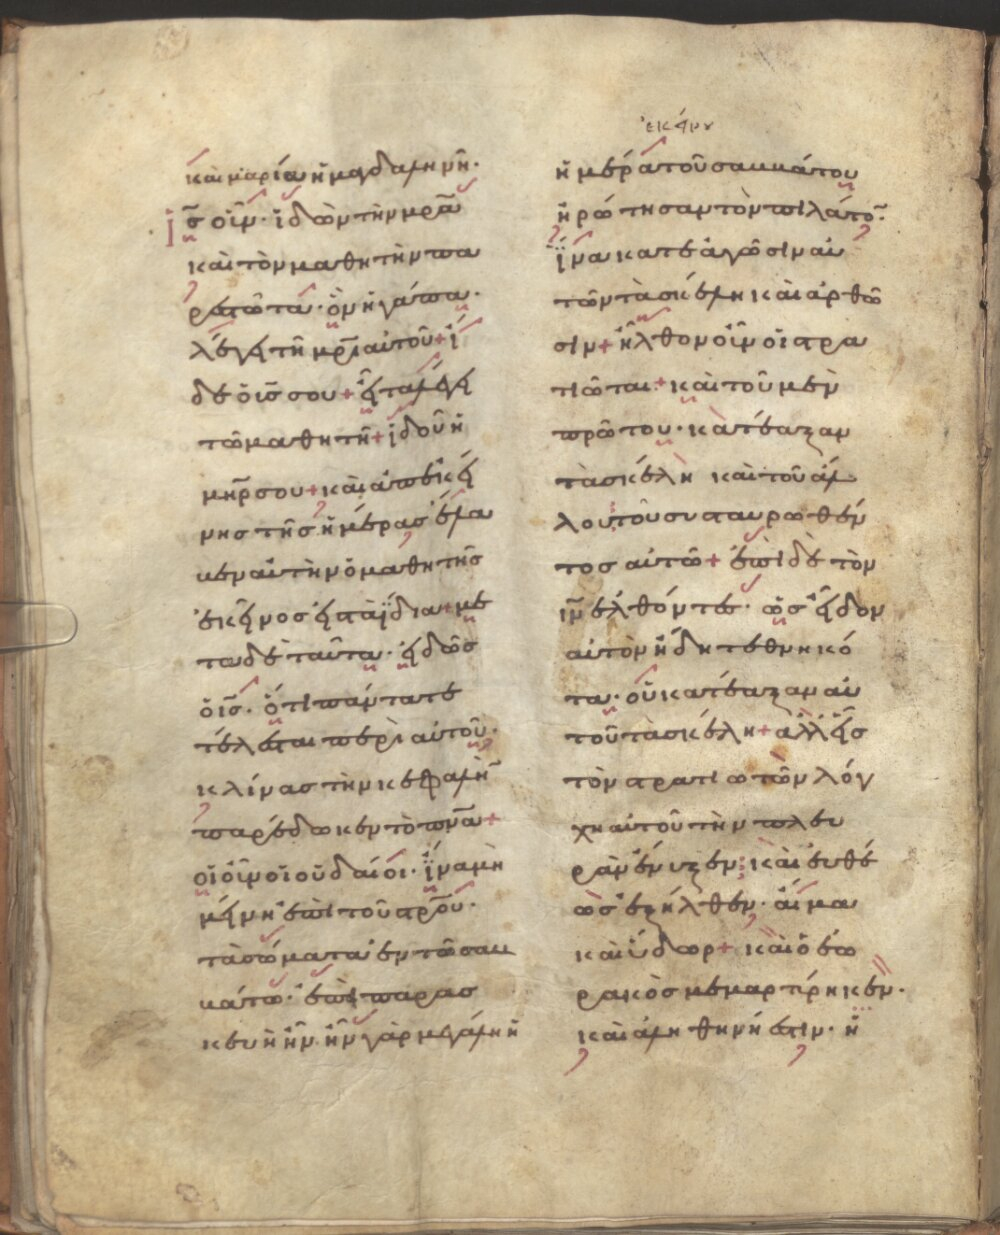 καὶ μαρία ἡ μαγδαληνῆ·
ις̅ οὖν· ἰδὼν τὴν μρα̅
καὶ τὸν μαθητὴν πα
ρεστῶτα· ὃν ἠγάπα·
λέγει τῆ μρι̅ αὐτοῦ + ἴ
δε ὁ υἱς̅ σου + εἶτα λέγει
τῶ μαθητῆ + ἰδοῦ ἡ
μηρ̅ σου + καὶ ἀπ' ἐκεί
νης τῆς ἡμέρας ἔλα
βεν αὐτὴν ὁ μαθητῆς
ἐκεῖνος εἰς τὰ ἴδια + με
τα δὲ ταῦτα· εἰδὼς
ὁ ις̅· ὅτι πάντα τε
τέλεσται περὶ αὐτοῦ·
κλίνας τὴν κεφαλὴν
παρέδωκεν τὸ πνα̅ +
οἱ οὖν ἰουδαίοι· ἵνα μὴ
μείνη ἐπὶ τοῦ στρου̅·
τὰ σώματα ἐν τῶ σαβ
βάτω· ἐπεὶ παρασ
κευὴ ἦν· ἦν γὰρ μεγάλη ἡ
ἐκείνου
ἡμέρα τοῦ σαββάτου
ἠρώτησαν τὸν πιλάτον·
ἵνα κατεαγῶσιν αὐ
τῶν τὰ σκέλη καὶ ἀρθῶ
σιν + ἦλθον οὖν οἱ στρα
τιῶται + καὶ τοῦ μὲν
πρῶτου· κατέαξαν
τὰ σκέλη καὶ τοῦ ἄλ
λου τοῦ συσταυρωθέν
τος αὐτῶ + ἐπὶ δὲ τὸν
ιν̅ ἐλθόντες· ὡς εἶδον
αὐτὸν ἤδη τεθνηκό
τα· οὐ κατέαξαν αὐ
τοῦ τὰ σκέλη + ἀλλ' εἷς
τὸν στρατιωτῶν λόγ
χη αὐτοῦ τὴν πλευ
ρὰν ἔνυξεν· καὶ εὐθέ
ως ἐξῆλθεν· αἷμα
καὶ ὕδωρ + καὶ ὁ ἑω
ρακὸς μεμαρτύρηκεν·
καὶ ἀληθηνή ἐστιν· ἡ